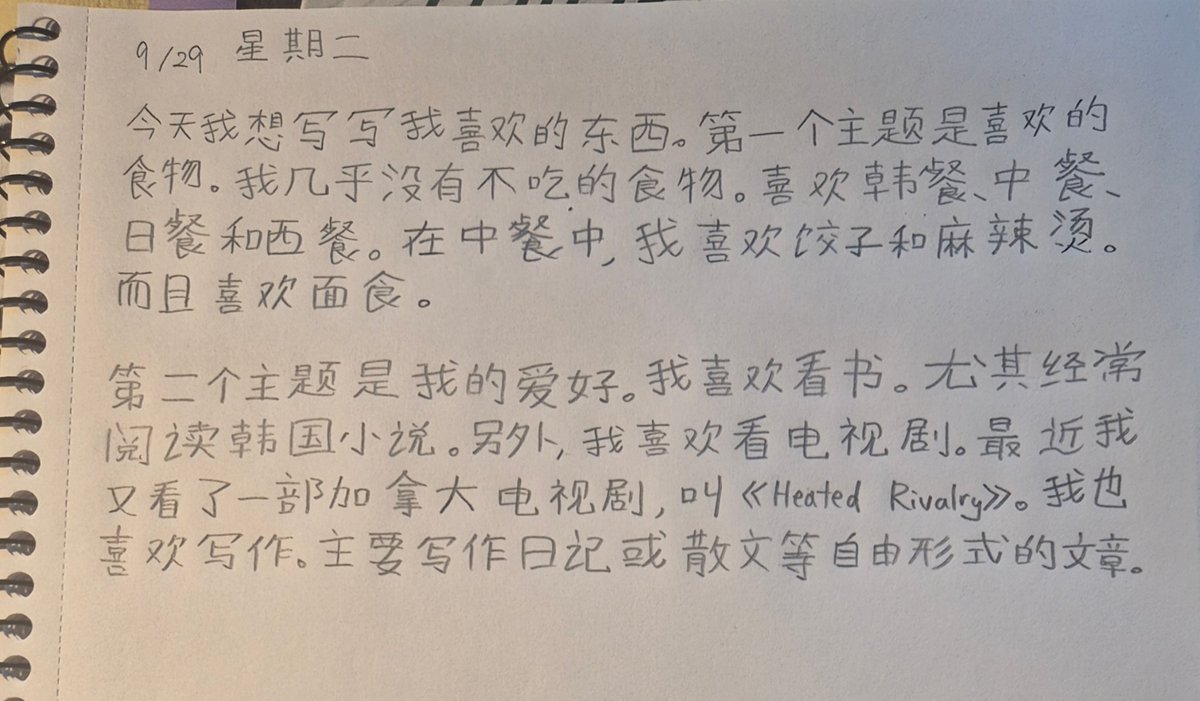 9/29 星期二
今天我想写写我喜欢的东西。第一个主题是喜欢的
食物。我几乎没有不吃的食物。喜欢韩餐、中餐、
日餐和西餐。在中餐中,我喜欢饺子和麻辣烫。
而且喜欢面食。
第二个主题是我的爱好。我喜欢看书。尤其经常
阅读韩国小说。另外,我喜欢看电视剧。最近我
又看了一部加拿大电视剧,叫《Heated Rivalry》。我也
喜欢写作。主要写作日记或散文等自由形式的文章。